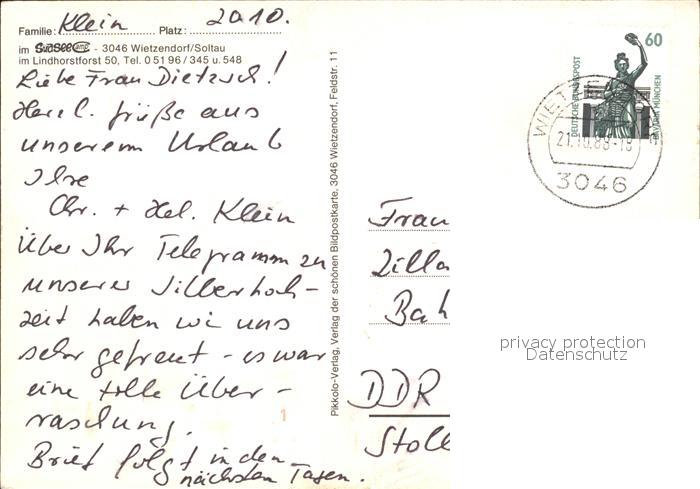 Familie: Klein Platz: 20.10.
im SüdSeeCamp - 3046 Wietzendorf/Soltau
im Lindhorstforst 50, Tel. 0 51 96 / 345 u. 548
Liebe Frau Dietzsch!
Herzl. Grüße aus
unserem Urlaub
Ihre
Chr. + Hel. Klein
Über Ihr Telegramm zu
unserer Silberhoch-
zeit haben wir uns
sehr gefreut - es war
eine tolle Über-
raschung.
Brief folgt in den
nächsten Tagen.
Pikkolo-Verlag, Verlag der schönen Bildpostkarte, 3046 Wietzendorf, Feldstr. 11
60
DEUTSCHE BUNDESPOST
BAVARIA MÜNCHEN
21.10.88-18
3046
Frau
Zilla
Bah
DDR
Stoll
privacy protection
Datenschutz